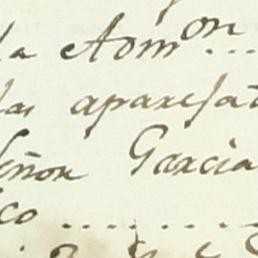 la Adm^on ....
las aparejat
Señor Garcia
co .........